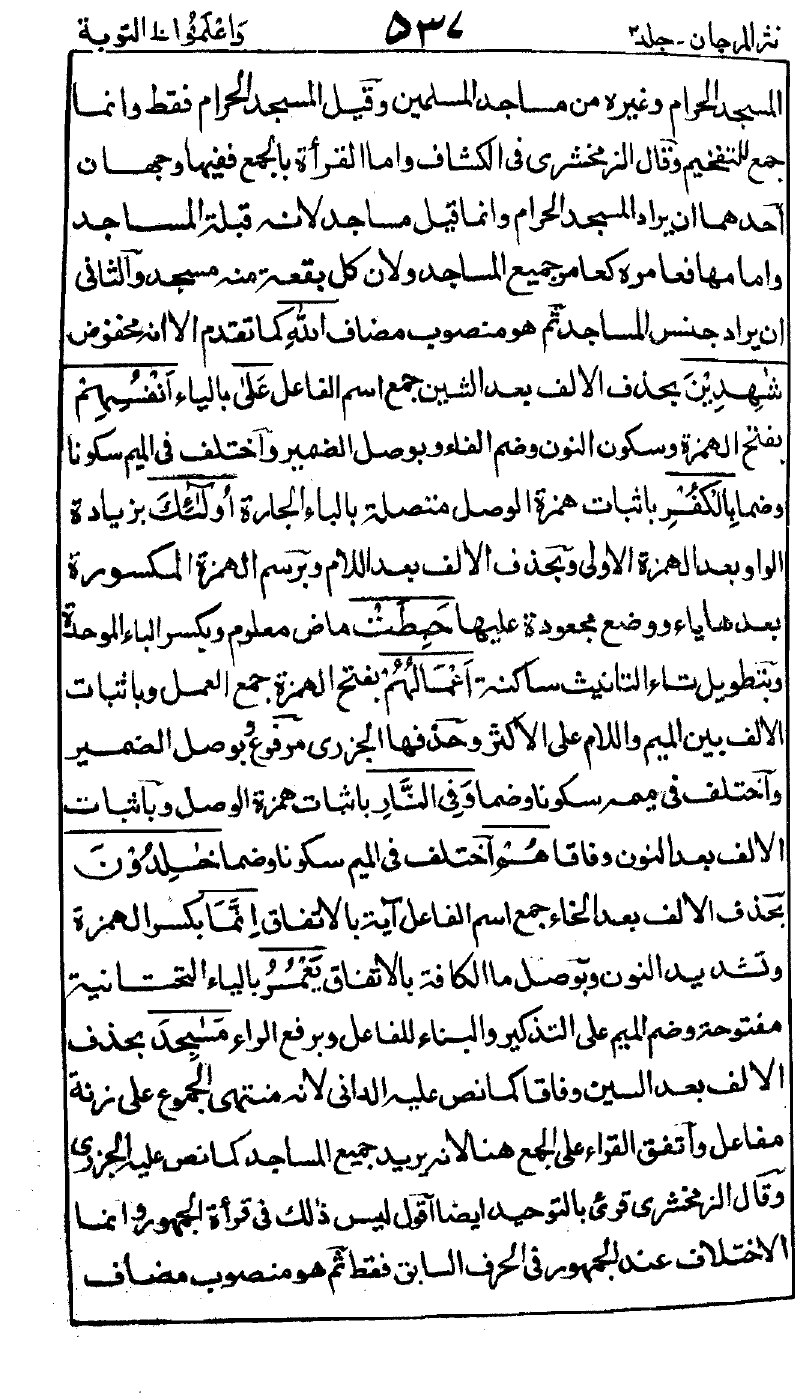 نثر المرجان - جلد ٢ ٥٣٧ واعلموا ١٠ التوبة
المسجد الحرام وغيره من مساجد المسلمين وقيل المسجد الحرام فقط وانما
جمع للتفخيم وقال الزمخشرى فى الكشاف واما القرأة بالجمع ففيها وجهان
احدهما ان يراد المسجد الحرام وانما قيل مساجد لانه قبلة المساجد
وامامها فعامره كعامر جميع المساجد ولان كل بقعة منه مسجد والثانى
ان يراد جنس المساجد ثم هو منصوب مضاف اللهِ كما تقدم الا انه مخفوض
شٰهِدِيْنَ بحذف الالف بعد الشين جمع اسم الفاعل عَلٰى بالياء اَنْفُسِهِمْ
بفتح الهمزة وسكون النون وضم الفاء وبوصل الضمير واختلف فى الميم سكونا
وضما بِالْكُفْرِ باثبات همزة الوصل متصلة بالباء الجارة اُولٰٓئِكَ بزيادة
الواو بعد الهمزة الاولى وبحذف الالف بعد اللام وبرسم الهمزة المكسورة
بعدها ياء ووضع مجعودة عليها حَبِطَتْ ماض معلوم وبكسر الباء الموحدة
وبتطويل تاء التانيث ساكنة اَعْمَالُهُمْ بفتح الهمزة جمع العمل وباثبات
الالف بين الميم واللام على الاكثر وحذفها الجزرى مرفوع وبوصل الضمير
واختلف فى ميمه سكونا وضما وَفِى النَّارِ باثبات همزة الوصل وباثبات
الالف بعد النون وفاقا هُمْ اختلف فى الميم سكونا وضما خٰلِدُوْنَ
بحذف الالف بعد الخاء جمع اسم الفاعل آية بالاتفاق اِنَّمَا بكسر الهمزة
وتشديد النون وبوصل ما الكافة بالاتفاق يَعْمُرُ بالياء التحتانية
مفتوحة وضم الميم على التذكير والبناء للفاعل وبرفع الراء مَسٰجِدَ بحذف
الالف بعد السين وفاقا كما نص عليه الدانى لانه منتهى الجموع على زنة
مفاعل واتفق القراء على الجمع هنا لانه يريد جميع المساجد كما نص عليه الجزرى
وقال الزمخشرى قرئ بالتوحيد ايضا اقول ليس ذلك فى قرأة الجمهور وانما
الاختلاف عند الجمهور فى الحرف السابق فقط ثم هو منصوب مضاف